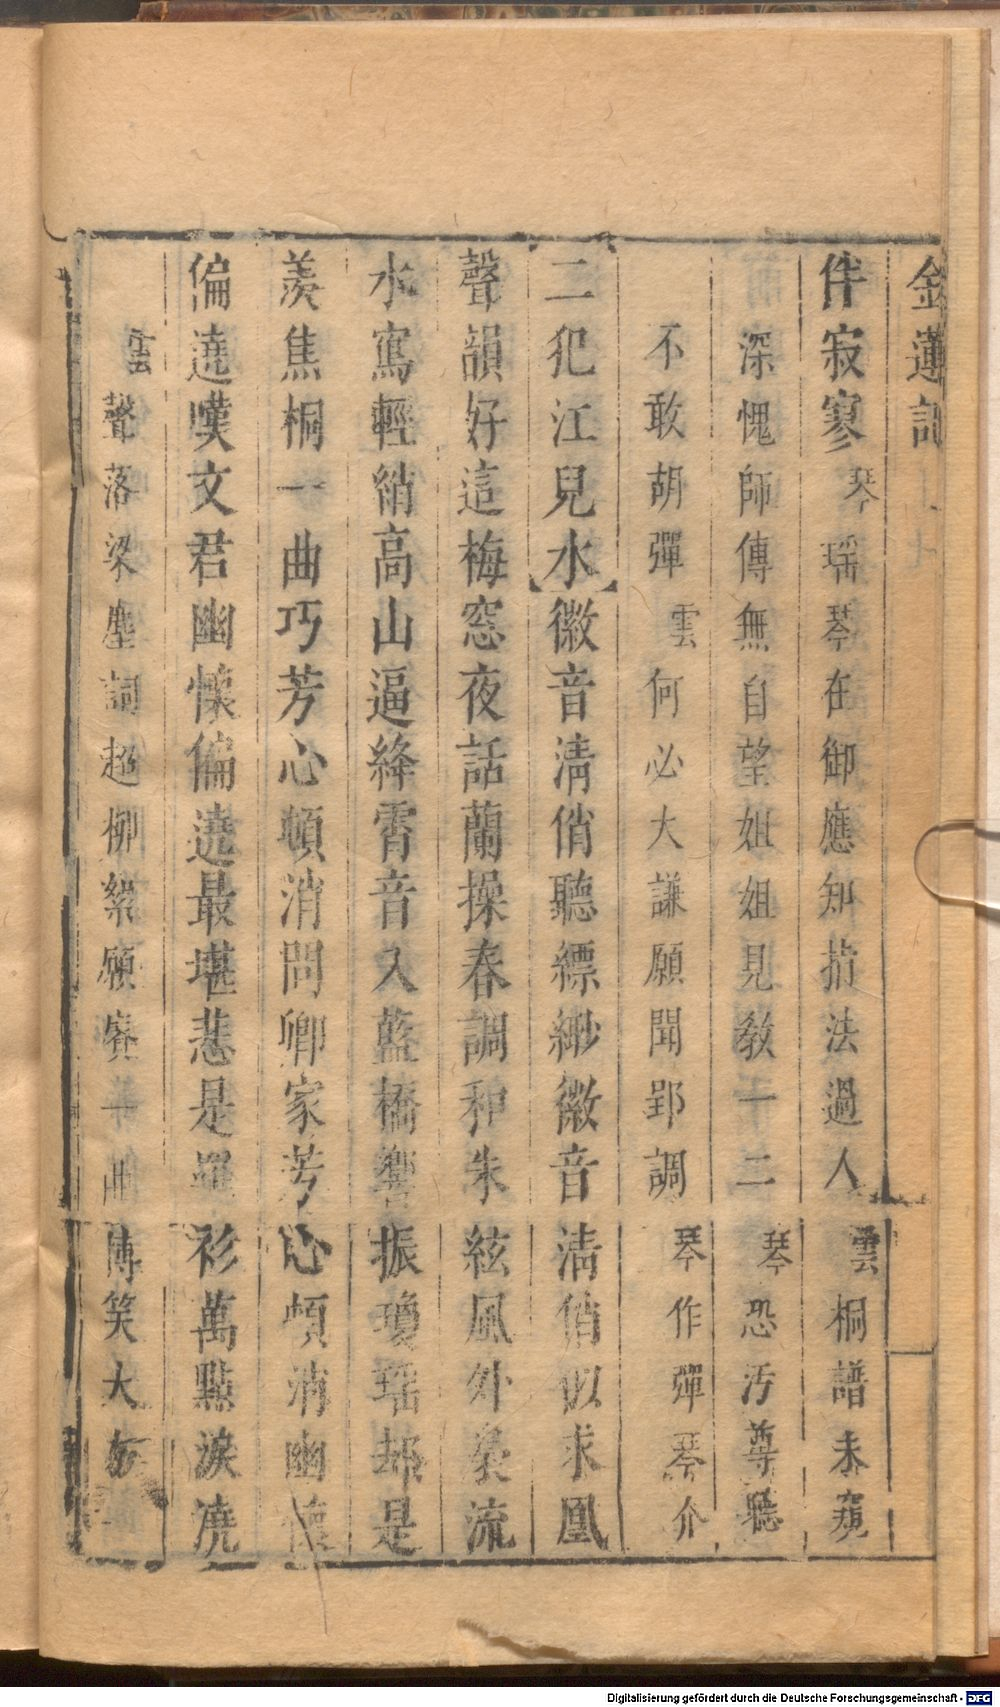 金蓮記
伴寂寥琴瑶琴在御應知指法過人雲桐譜未窺
深愧師傳無自望姐姐見教一二琴恐汚尊聽
不敢胡彈雲何必大謙願聞郢調琴作彈琴介
二犯江兒水徽音淸俏聽縹緲徽音淸俏似求凰
聲韻好這梅窓夜話蘭操春調和朱絃風外裊流
水寫輕綃高山逼絳霄音入藍橋響振瓊瑶却是
羨焦桐一曲巧芳心頓消問卿家芳心頓消幽懷
偏遶嘆文君幽懷偏遶最堪悲是羅衫萬點淚澆
雲聲落梁塵詞超柳絮願賡一曲博笑大
Digitalisierung gefördert durch die Deutsche Forschungsgemeinschaft - DFG